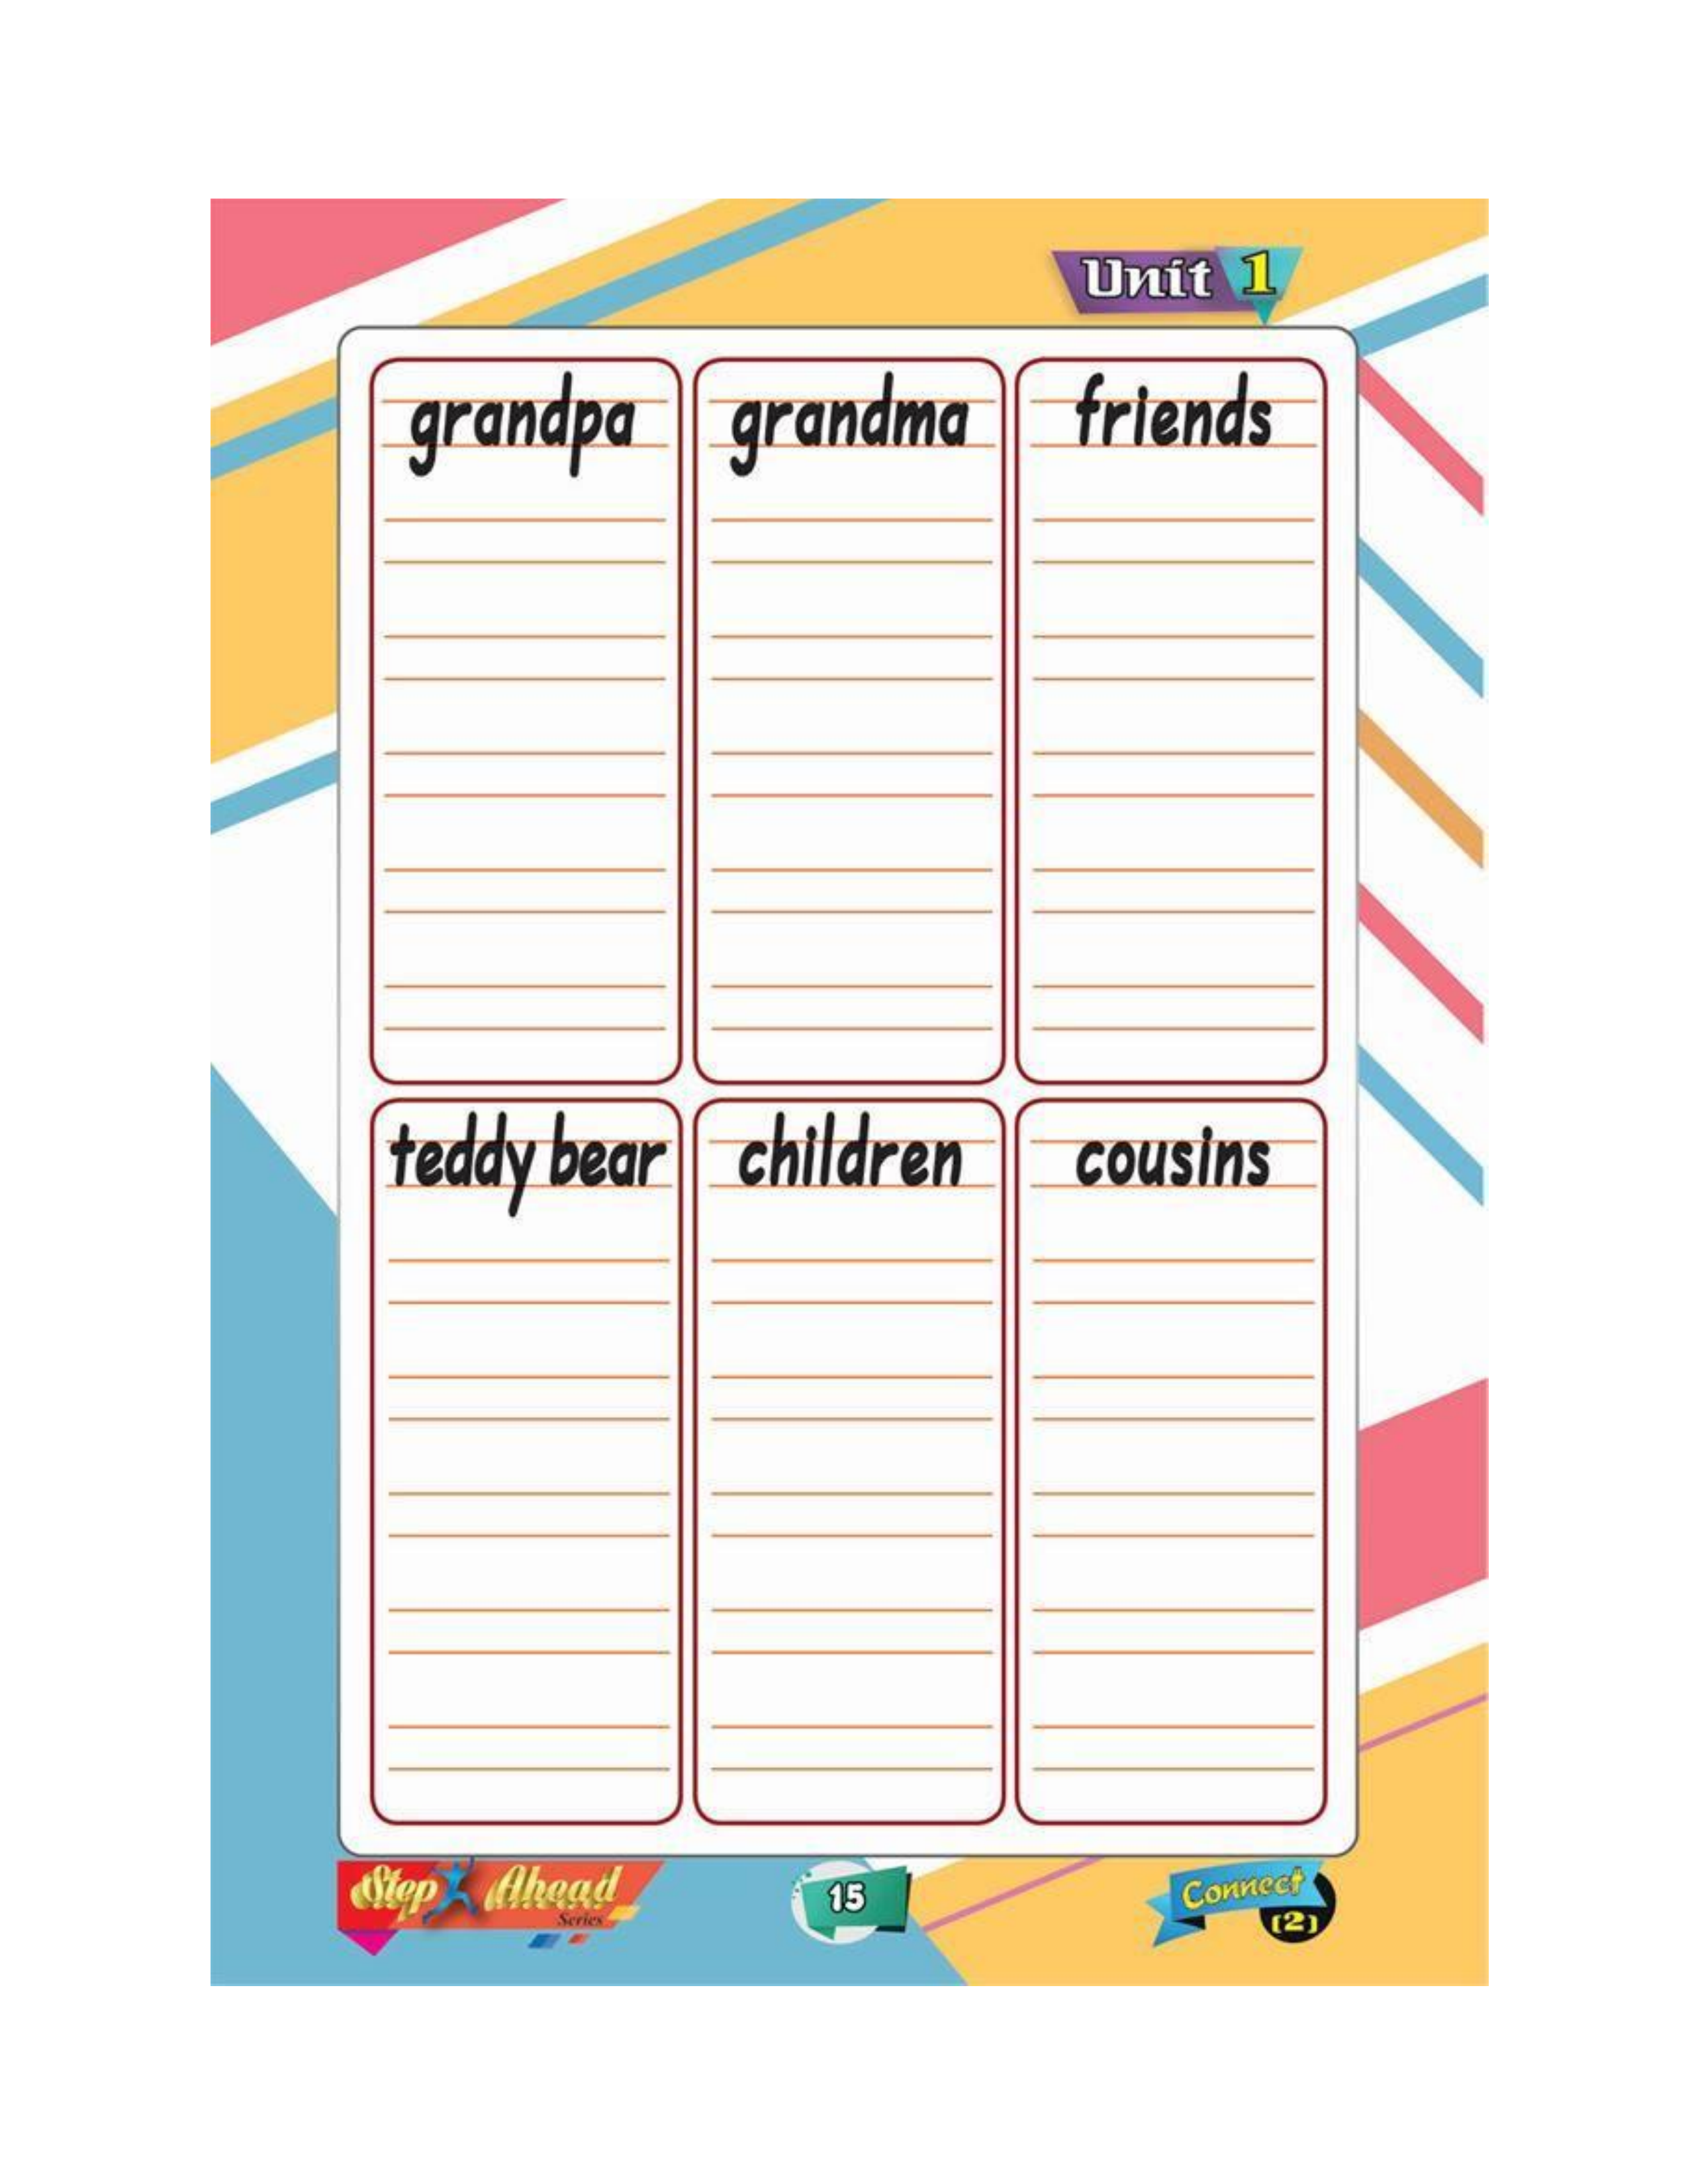 Unit 1
grandpa grandma friends
teddy bear children cousins
Step Ahead
Series
15
Connect
(2)